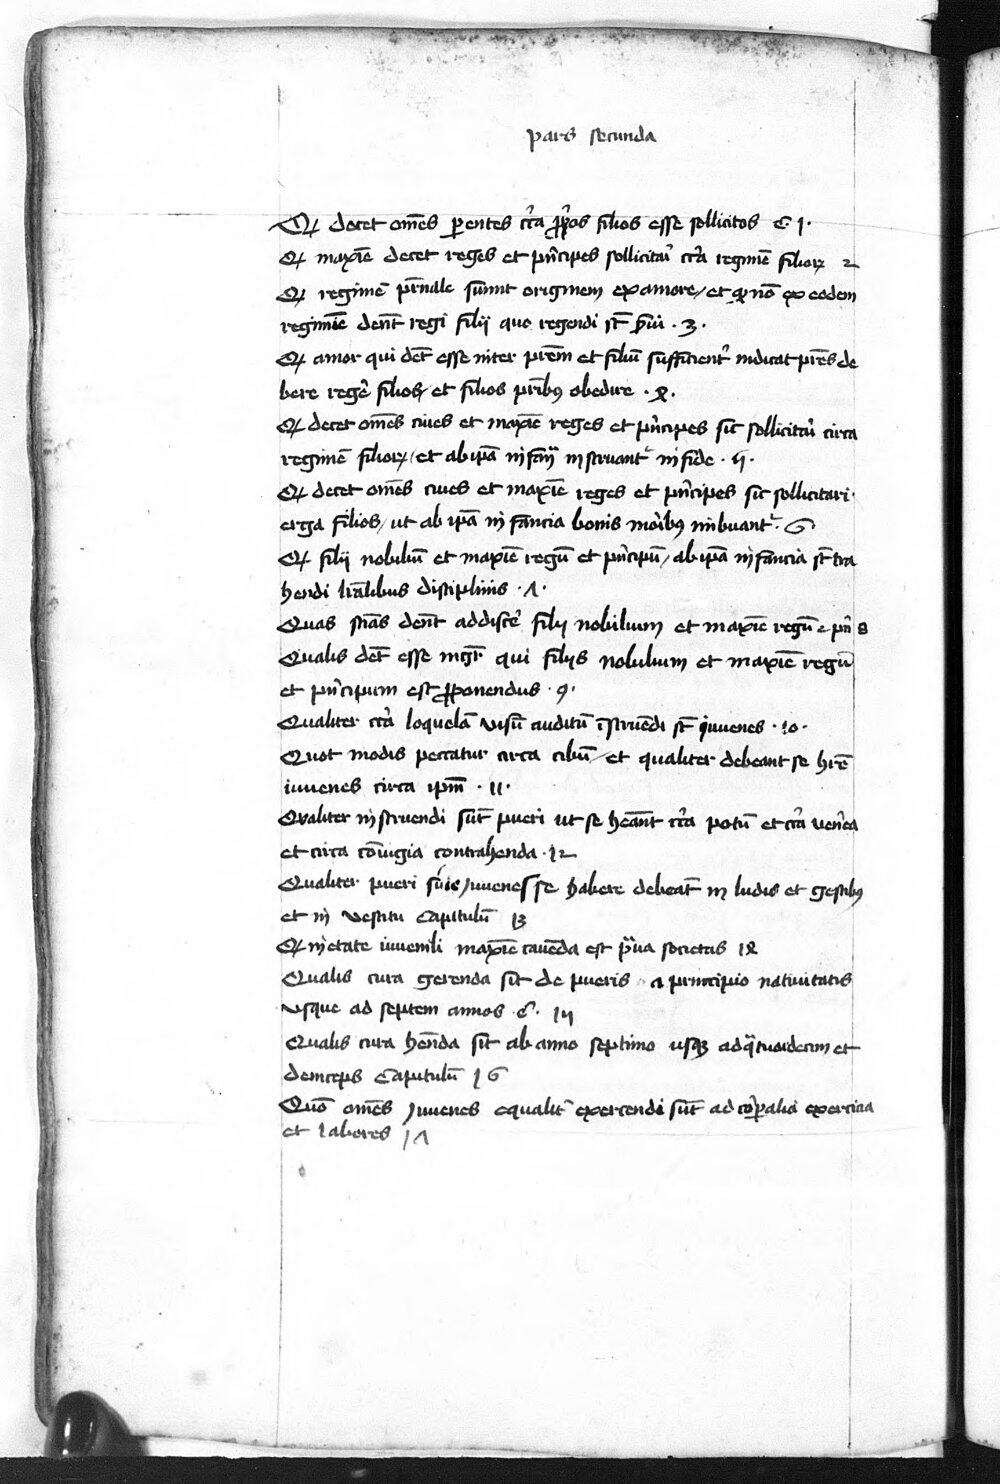 pars secunda
Qꝫ decet om̄es parentes cc̄a ꝓp̄os filios esse sollicitos c̄ · 1 ·
Qꝫ maxīe decet reges et pn̄cipes sollicitaī cc̄a regimē filioꝝ 2
Qꝫ regimē pr̄nale sumit originem ex amore / et ꝙ nō ex eodem
regimīe den̄t regi filij quo regendi st̄ s̄ui · 3 ·
Qꝫ amor qui dēt esse inter pr̄em et filiū sufficient̄ indicat pr̄es de
bere reger̄ filios / et filios pr̄ibꝰ obedire · 4 ·
Qꝫ decet om̄es ciues et maxīe reges et pn̄cipes sic̄ sollicitaī circa
regimē filioꝝ / et ab ip̄a infan̄ instruant᷑ in fide · 5 ·
Qꝫ decet om̄es ciues et maxīe reges et pn̄cipes sic sollicitari
erga filios / ut ab ip̄a in fancia bonis moribꝰ imbuant᷑ · 6
Qꝫ filij nobiliū et maxīe regū et pn̄cipū / ab ip̄a infancia st̄ tra
hendi lr̄alibus disciplinis · 7 ·
Quas sn̄as den̄t addiscer̄ filij nobilium et maxīe regū ⁊ pn̄ 8
Qualis dēt esse mgr̄ qui filijs nobilium et maxīe regū
et pn̄cipum est ꝓponendus · 9 ·
Qualiter cc̄a loquelā visū auditū īstruēdi st̄ iuuenes · 10 ·
Quot modis peccatur circa cibū / et qualiter debeant se hr̄e
iuuenes circa ipm̄ · 11 ·
Qualiter instruendi sūt pueri ut se heān̄t cc̄a potū et cc̄a ven̄ea
et circa cōiugia contrahenda · 12
Qualiter pueri siue / iuuenes se habere debeāt in ludis et gestibꝰ
et in vestitu Capitulū 13
Qꝫ in etate iuuenili maxīe cauēda est pͣua societas 14
Qualis cura gerenda sit de pueris a principio natiuitatis
vsque ad septem annos c̄ · 15
Qualis cura hēnda sit ab anno septimo usqꝫ ad qͣtuordecim et
deinceps Capitulū 16
Quō om̄es Juuenes equalit̄ exercendi sūt ad corꝑalia exercicia
et labores 17